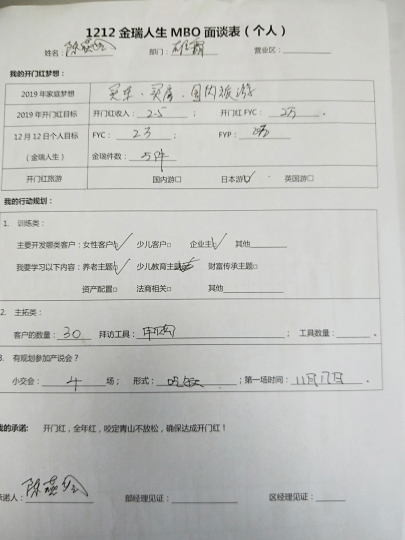 1212金瑞人生MBO面谈表（个人）
姓名： 部门： 营业区：
我的开门红梦想：
2019年家庭梦想 买车、买房、国内旅游
2019年开门红目标 开门红收入：2.5； 开门红FYC：2万。
12月12日个人目标 FYC：2万； FYP：
（金瑞人生） 金瑞件数：5件
开门红旅游 国内游□ 日本游☑ 英国游□
我的行动规划：
1. 训练类：
主要开发哪类客户：女性客户☑ 少儿客户□ 企业主☑ 其他
我要学习以下内容：养老主题☑ 少儿教育主题 财富传承主题□
资产配置□ 法商相关□ 其他
2. 主拓类：
客户的数量：30 拜访工具： ； 工具数量： 。
3. 有规划参加产说会？
小交会：4场； 形式： ；第一场时间：11月17日。
我的承诺： 开门红，全年红，咬定青山不放松，确保达成开门红！
承诺人： 部经理见证： 区经理见证：